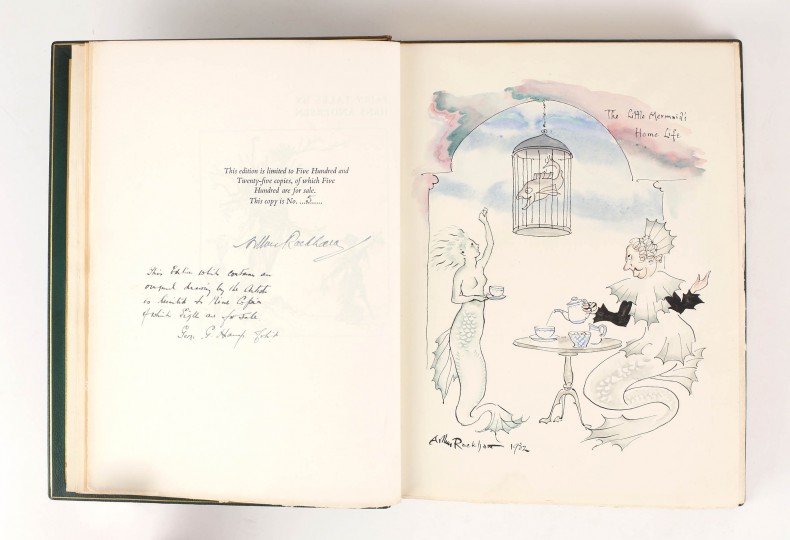 This edition is limited to Five Hundred and
Twenty-five copies, of which Five
Hundred are for sale.
This copy is No. ...5......
Arthur Rackham
This Edition which contains an
original drawing by the Artist
is limited to Nine Copies
of which Eight are for sale
Geo. G. Harrap
The Little Mermaid's
Home Life
Arthur Rackham 1932